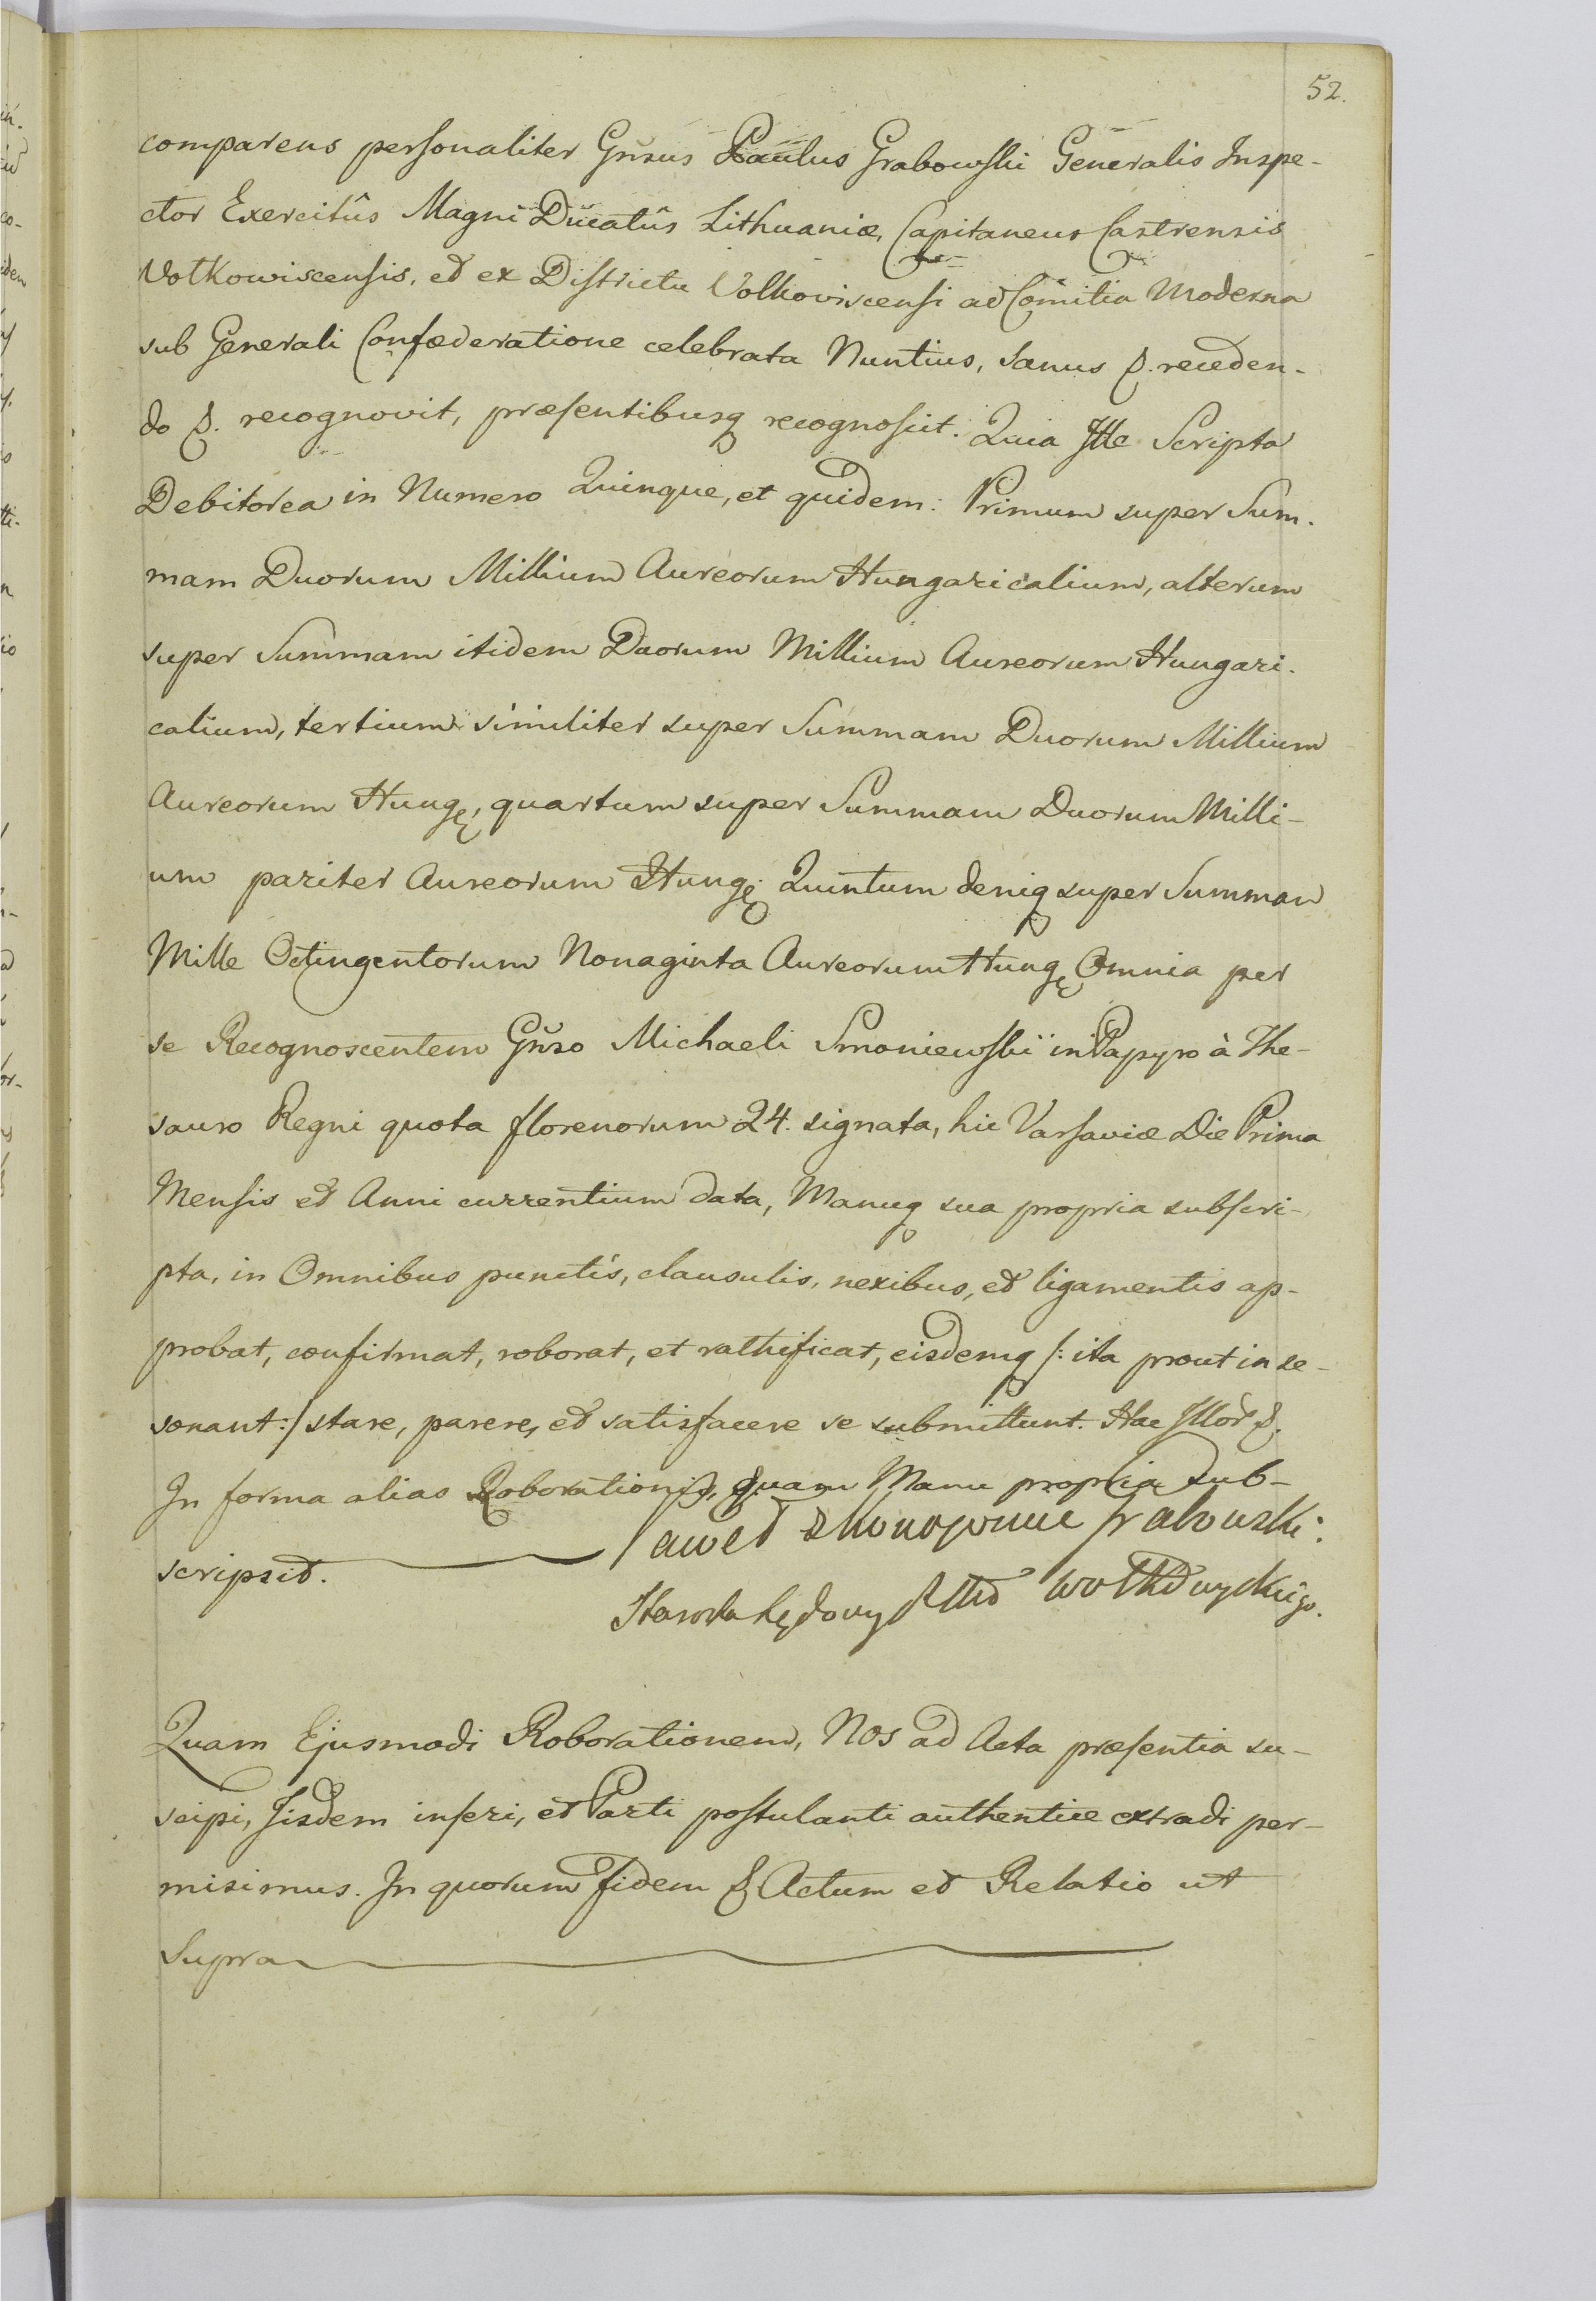 52.
comparens personaliter Gnsus Paulus Grabowski Generalis Inspe-
ctor Exercitûs Magni Ducatûs Lithuaniæ, Capitaneus Castrensis
Wołkowiscensis, et ex Districtu Volkoviscensi ad Comitia Moderna
sub Generali Confæderatione celebrata Nuntius, Sanus &. receden-
do &. recognovit, præsentibusq recognoscit. Quia Ille Scripta
Debitorea in Numero Quinque, et quidem: Primum super Sum-
mam Duorum Millium Aureorum Hungaricalium, alterum
super Summam itidem Duorum Millium Aureorum Hungari-
calium, tertium similiter super Summam Duorum Millium
Aureorum Hung, quartum super Summam Duorum Milli-
um pariter Aureorum Hung Quintum deniq super Summam
Mille Octingentorum Nonaginta Aureorum Hung Omnia per
se Recognoscentem Gnso Michaeli Smoniewski in Papyro à The-
sauro Regni quota florenorum 24. signata, hic Varsaviæ Die Prima
Mensis et Anni currentium data, Manuq sua propria subscri-
pta, in Omnibus punctis, clausulis, nexibus, et ligamentis ap-
probat, confirmat, roborat, et rathificat, eisdemq /: ita prout in se
sonant :/ stare, parere, et satisfacere se submittunt. Hac Illor &.
In forma alias Roborationis, quam Manu propria Sub-
scripsit. Paweł Grabowski:
Starosta Wołkowyskiego.
Quam Ejusmodi Roborationem, Nos ad Acta præsentia su-
scipi, Iisdem inseri, et Parti postulanti authentice extradi per-
misimus. In quorum Fidem & Actum et Relatio ut
Supra